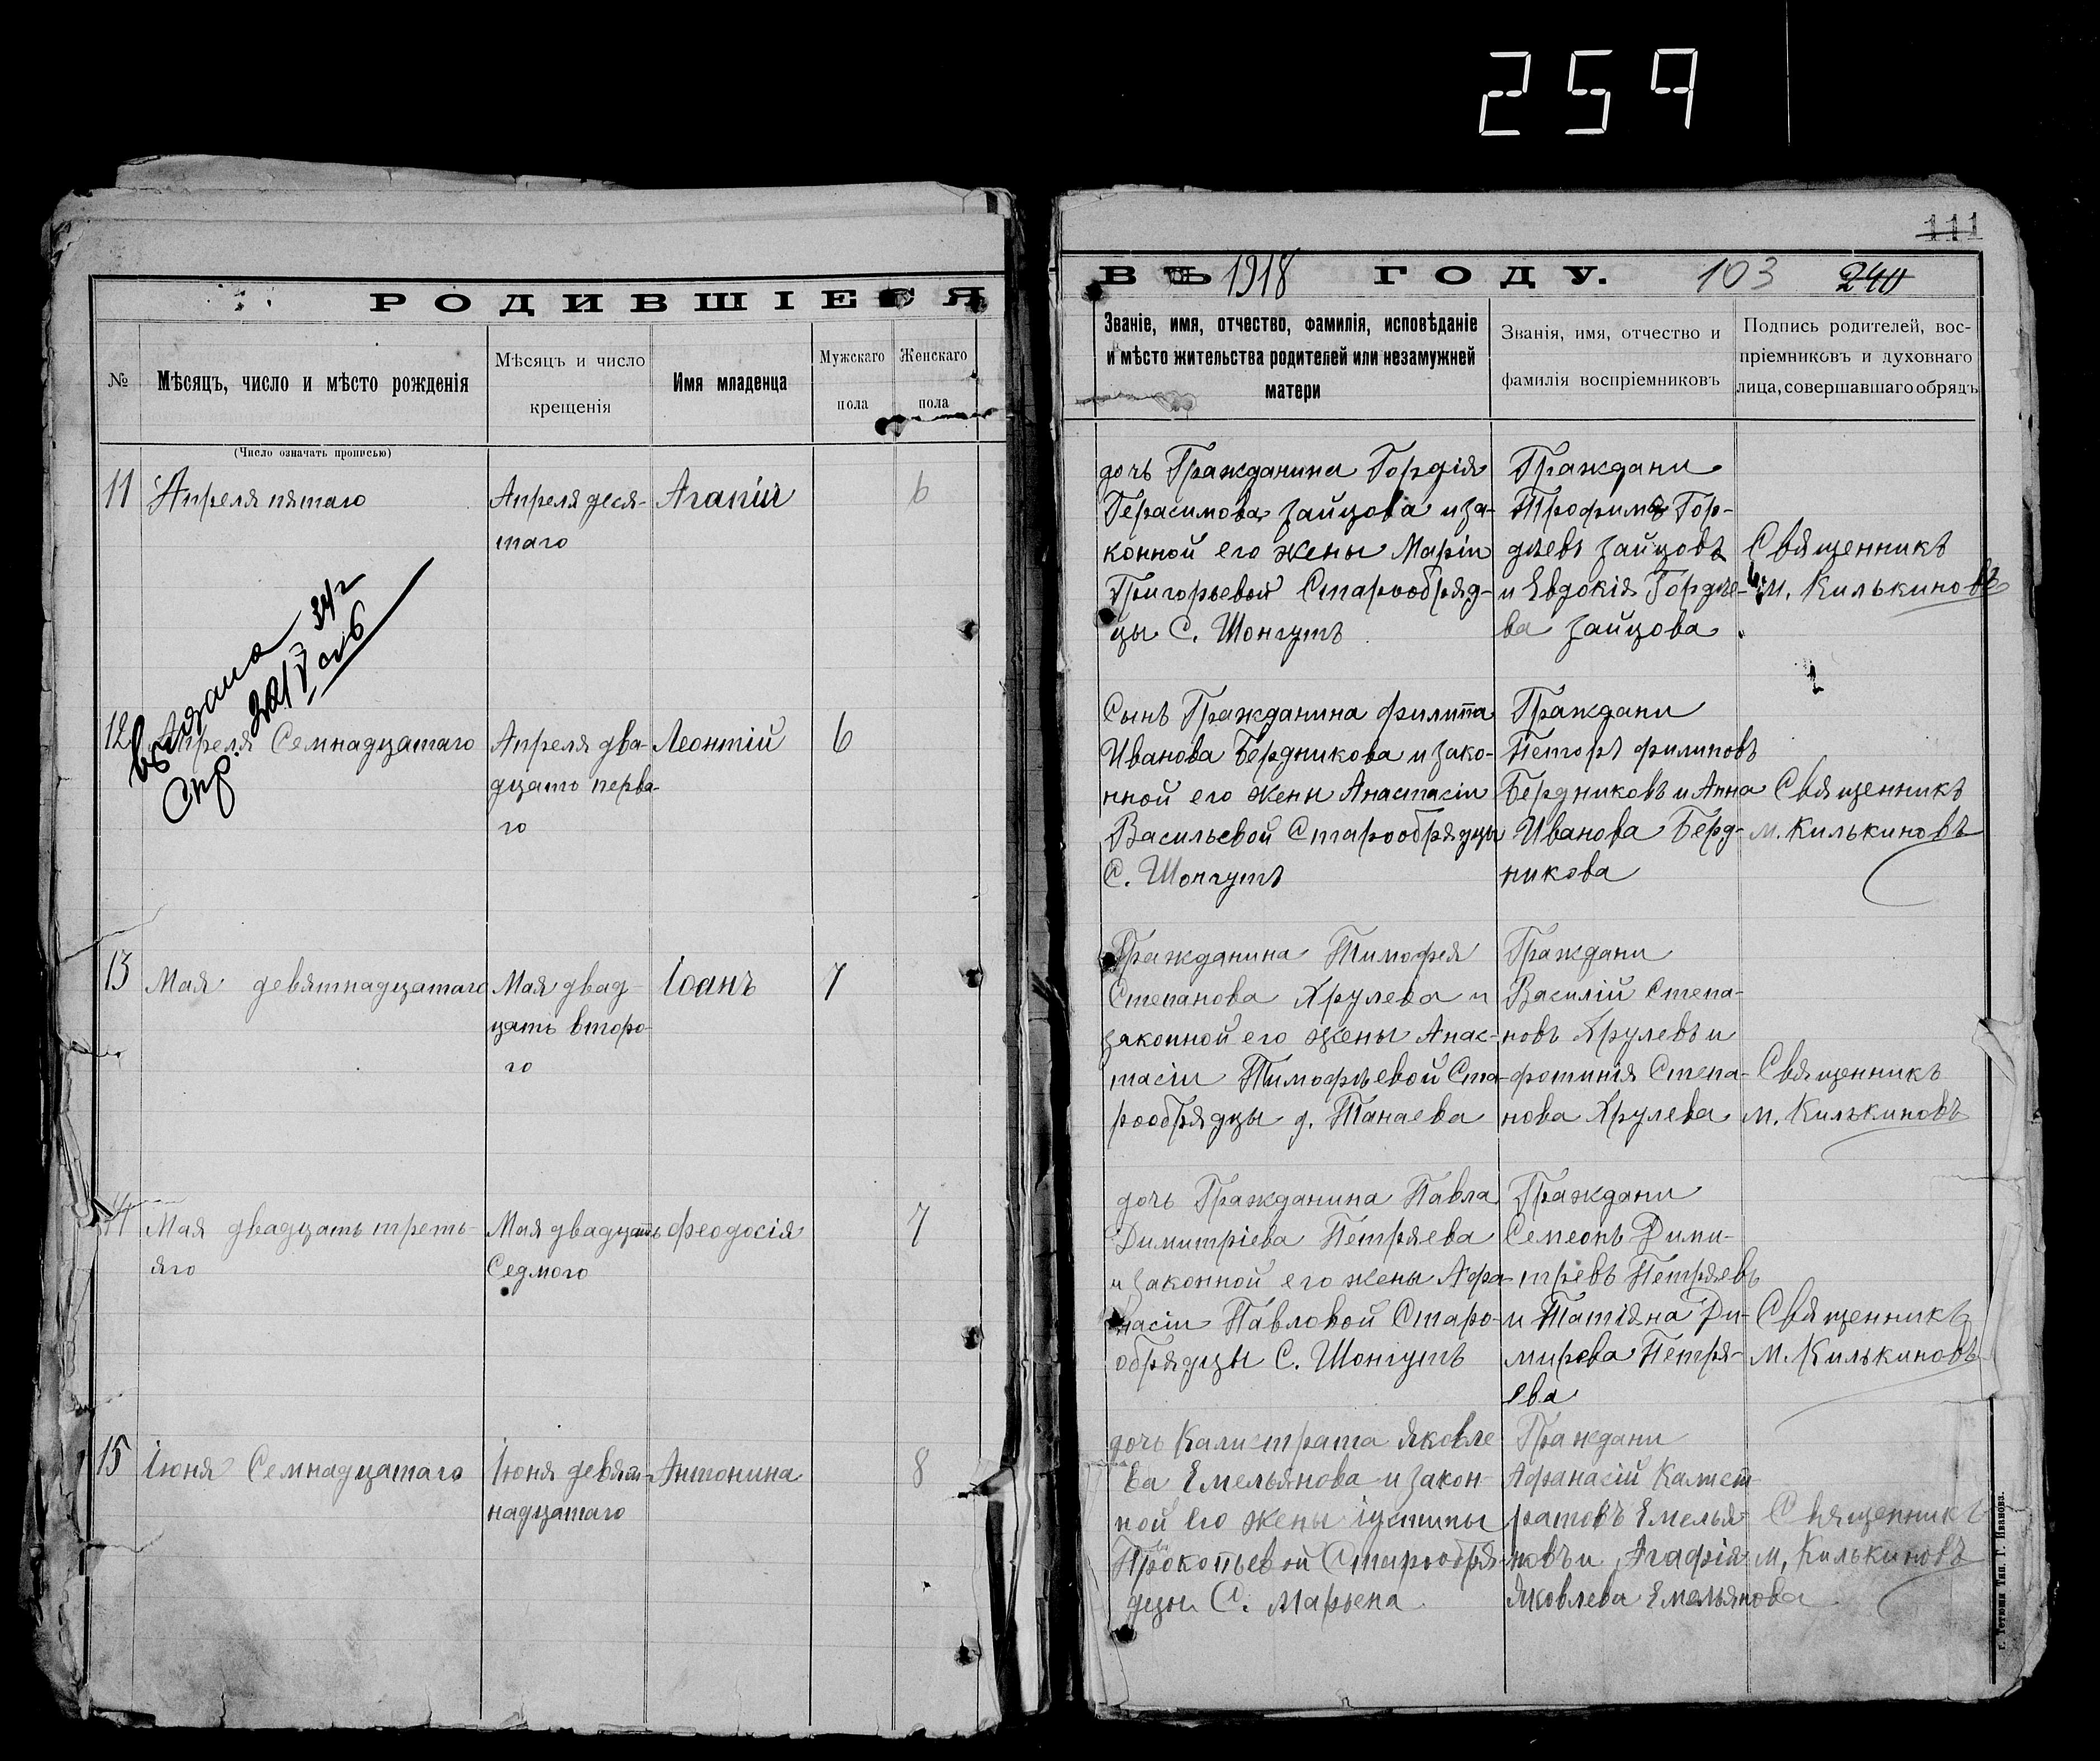 259
111
РОДИВШІЕСЯ
ВЪ 1918 ГОДУ. 103 240
№
Мѣсяцъ, число и мѣсто рожденія
Мѣсяцъ и число
крещенія
Имя младенца
Мужскаго
пола
Женскаго
пола
Званіе, имя, отчество, фамилія, исповѣданіе
и мѣсто жительства родителей или незамужней
матери
Званія, имя, отчество и
фамилія воспріемниковъ
Подпись родителей, вос-
пріемниковъ и духовнаго
лица, совершавшаго обрядъ
(Число означать прописью)
11
Апреля пятаго
Апреля деся-
таго
Агапiи
6
дочь Гражданина Гордія
Герасимова Зайцова и за-
конной его жены Маріи
Григорьевой Старообряд-
цы С. Шонгутъ
Граждани
Трофимъ Гор-
дѣевъ Зайцовъ
и Евдокія Гордѣе-
ва Зайцова
Священникъ
М. Килькиновъ
выдана
спр.
12
Апреля Семнадцатаго
Апреля два-
дцато перва-
го
Леонтій
6
Сынъ Гражданина Филиппа
Иванова Бердникова и зако-
нной его жены Анастасіи
Васильевой Старообрядцы
С. Шонгутъ
Граждани
Петоръ Филиповъ
Бердниковъ и Анна
Иванова Берд-
никова
Священникъ
М. Килькиновъ
13
Мая девятнадцатаго
Мая двад-
цать второ-
го
Іоанъ
7
Гражданина Тимофея
Степанова Хрулева и
законной его жены Анас-
тасіи Тимофѣевой Ста-
рообрядцы д. Танаева
Граждани
Василій Степа-
новъ Хрулевъ и
Фотинія Степа-
нова Хрулева
Священникъ
М. Килькиновъ
14
Мая двадцать треть-
яго
Мая двадцать
Седмого
Феодосія
7
дочь Гражданина Павла
Димитріева Петряева
и законной его жены Афа-
насіи Павловой Старо-
обрядцы С. Шонгутъ
Граждани
Семеонъ Дими-
тревъ Петряевъ
и Татіяна Ди-
мирева Петря-
ева
Священникъ
М. Килькиновъ
15
Іюня Семнадцатаго
Іюня девят-
надцатаго
Антонина
8
дочь Калистрата Яковле
ва Емельянова и закон-
ной его жены іустины
Прокопьевой Старообря-
дцы С. Марьена
Граждани
Афанасій Калист-
ратовъ Емелья-
новъ и Агафія
Яковлева Емельянова
Священникъ
М. Килькиновъ
г. Тетюши Тип. Г. Иванова.